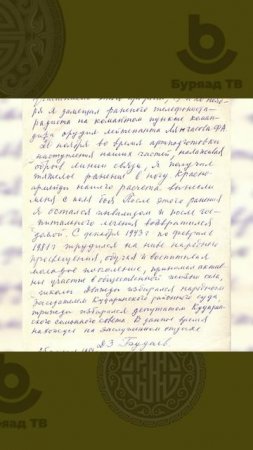 Буряад ТВ
ря я замещал раненого телефониста-
радиста на командном пункте коман-
дира орудия лейтенанта
ноября во время артподготовки
наступления наших частей,
обрыв линии связи я получил
тяжелое ранение в ногу Красно-
армейцы нашего расчета вынесли
меня с поля боя После этого ранения
Я остался инвалидом и после гос-
питального лечения возвратился
домой. С декабря 1943 г по февраль
1981 г трудился на ниве народного
просвещения, обучая и воспитывая
молодое поколение, принимал актив-
ное участие в общественной жизни села,
школы Дважды избирался народным
заседателем Кударинского районного суда,
трижды избирался депутатом Кударин-
ского сомонного совета В данное время
нахожусь на заслуженном отдыхе
Буряад ТВ